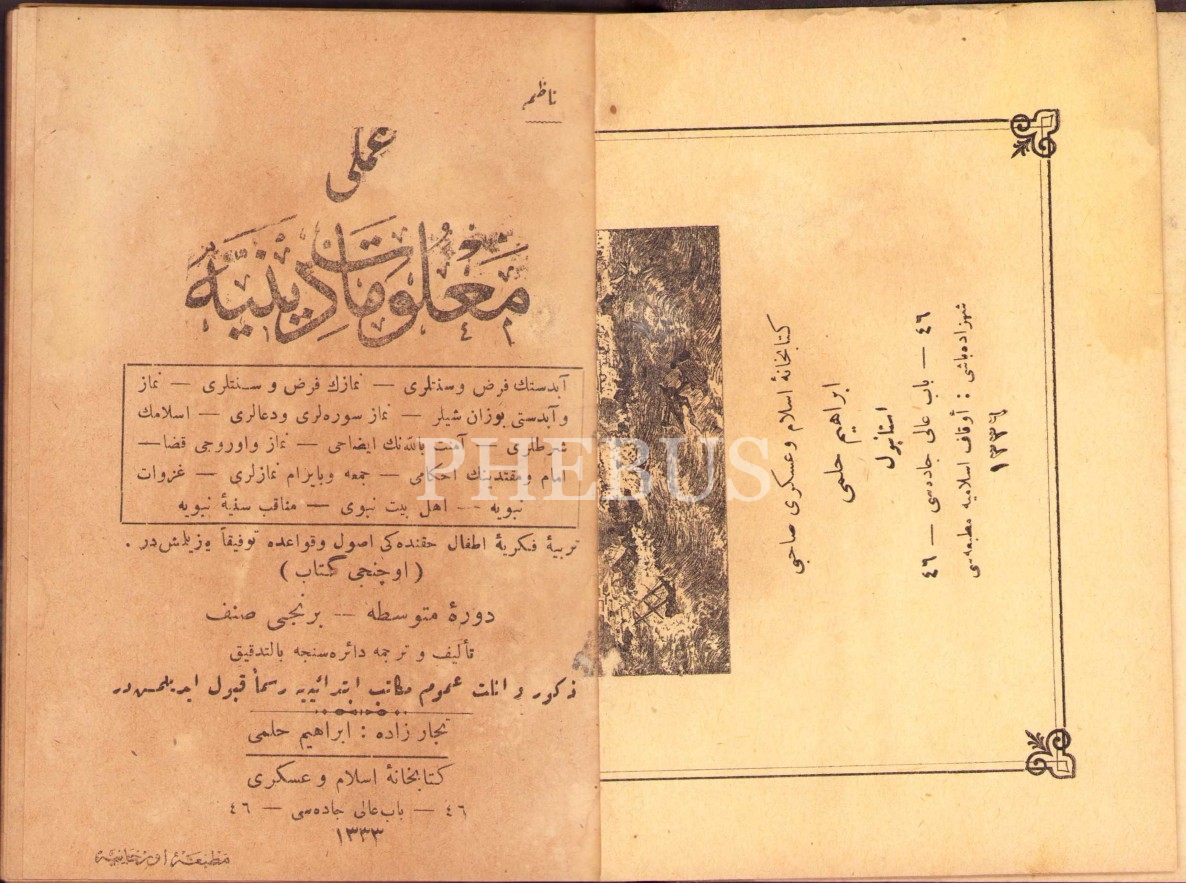 ناظم
عملی
معلومات دینیه
آبدستك فرض وسنتلری — نمازك فرض و سنتلری — نماز
وآبدستی بوزان شیلر — نماز سوره‌لری ودعالری — اسلامك
شرطلری — آمنت باللهنك ایضاحی — نماز واوروجی قضا —
امام ومقتدینك احكامی — جمعه وبایرام نمازلری — غزوات
نبویه — اهل بیت نبوی — مناقب سنیهٔ نبویه
تربیهٔ فكریهٔ اطفال حقنده‌كی اصول وقواعده توفیقاً یازیلمش‌در .
( اوچنجی كتاب )
دورهٔ متوسطه — برنجی صنف
تألیف و ترجمه دائره‌سنجه بالتدقیق
ذكور و اناث عموم مكاتب ابتدائیه‌یه رسماً قبول ایدیلمش‌در
نجار زاده : ابراهیم حلمی
كتابخانهٔ اسلام و عسكری
٤٦ — باب عالی جاده‌سی — ٤٦
١٣٣٣
مطبعهٔ اورخانیه
كتابخانهٔ اسلام وعسكری صاحبی
ابراهیم حلمی
استانبول
٤٦ — باب عالی جاده‌سی — ٤٦
شهزاده‌باشی : أوقاف اسلامیه مطبعه‌سی
١٣٣٦
PHEBUS